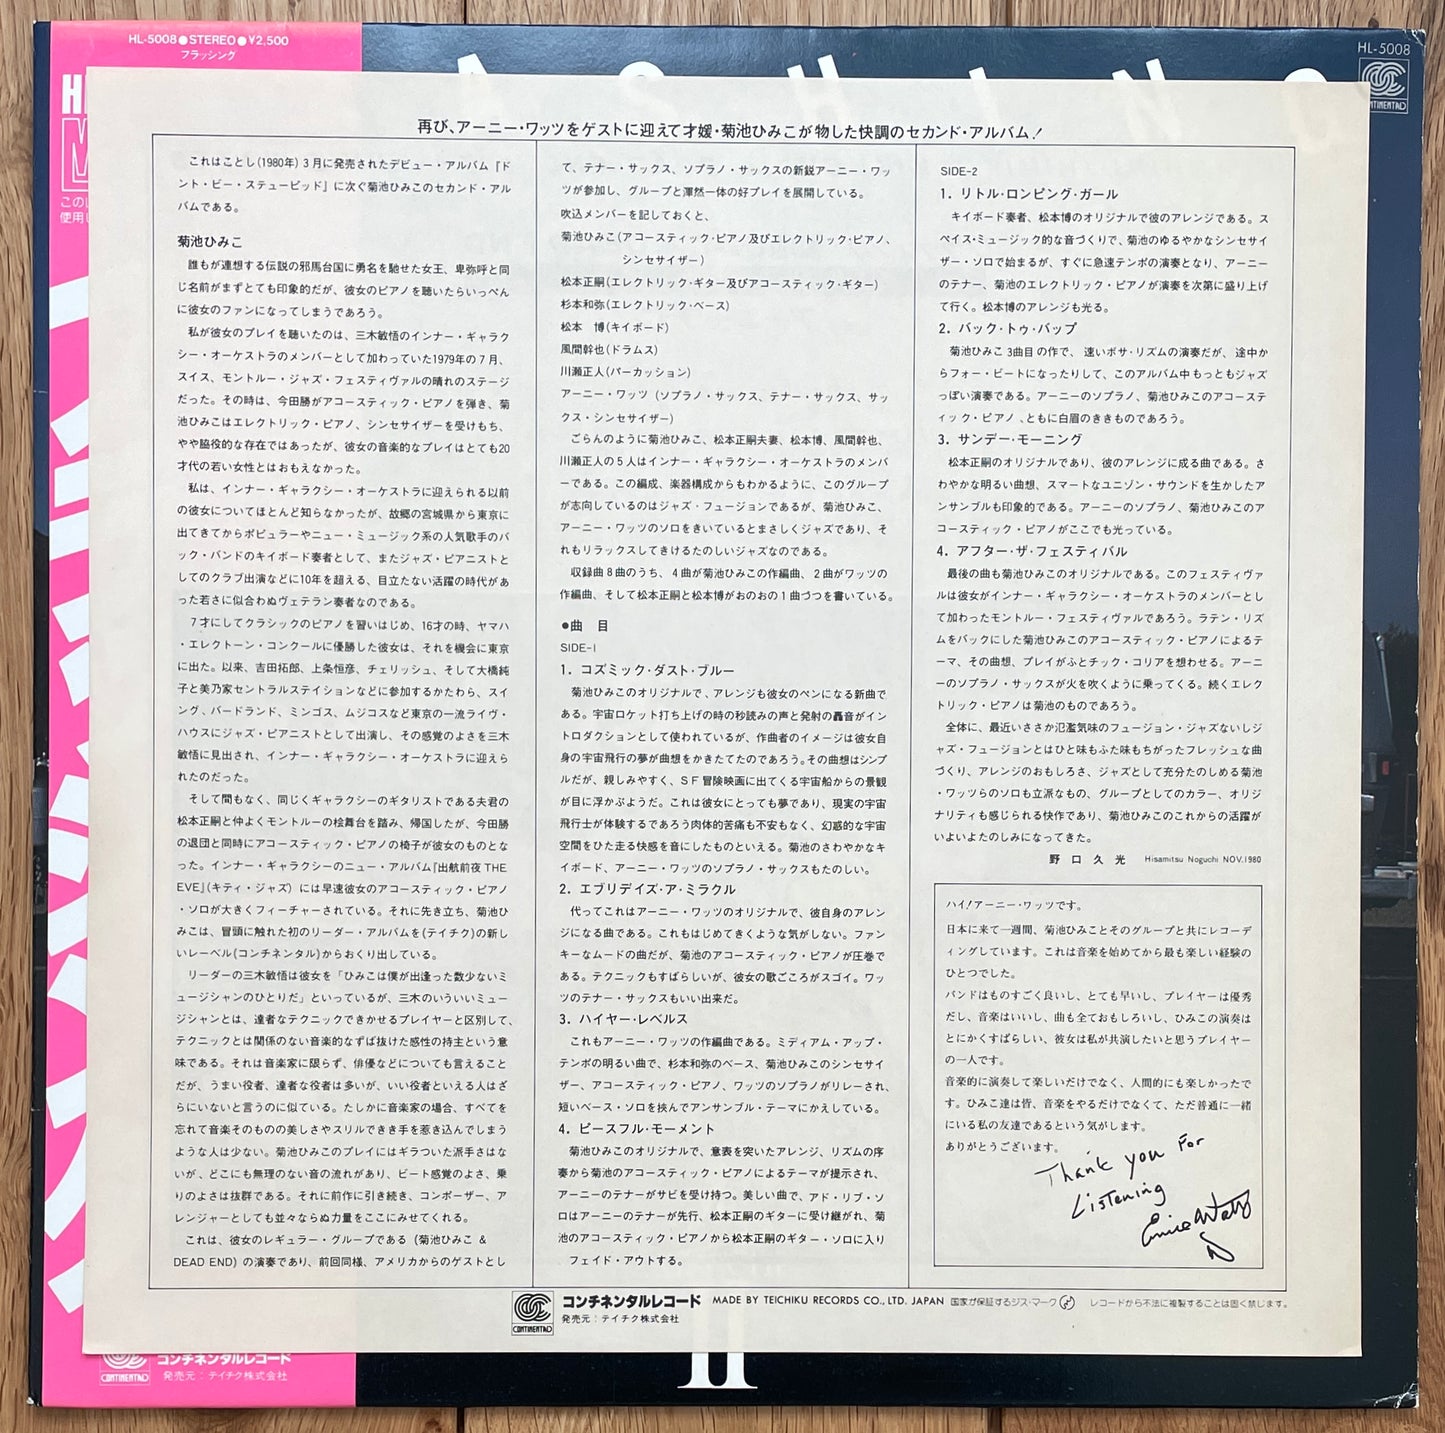 HL-5008●STEREO●¥2,500
フラッシング
HL-5008
CONTINENTAL
再び、アーニー・ワッツをゲストに迎えて才媛・菊池ひみこが物した快調のセカンド・アルバム！
これはことし(1980年) 3月に発売されたデビュー・アルバム『ド
ント・ビー・ステューピッド』に次ぐ菊池ひみこのセカンド・アル
バムである。
菊池ひみこ
誰もが連想する伝説の邪馬台国に勇名を馳せた女王、卑弥呼と同
じ名前がまずとても印象的だが、彼女のピアノを聴いたらいっぺん
に彼女のファンになってしまうであろう。
私が彼女のプレイを聴いたのは、三木敏悟のインナー・ギャラク
シー・オーケストラのメンバーとして加わっていた1979年の７月、
スイス、モントルー・ジャズ・フェスティヴァルの晴れのステージ
だった。その時は、今田勝がアコースティック・ピアノを弾き、菊
池ひみこはエレクトリック・ピアノ、シンセサイザーを受けもち、
やや脇役的な存在ではあったが、彼女の音楽的なプレイはとても20
才代の若い女性とはおもえなかった。
私は、インナー・ギャラクシー・オーケストラに迎えられる以前
の彼女についてほとんど知らなかったが、故郷の宮城県から東京に
出てきてからポピュラーやニュー・ミュージック系の人気歌手のバ
ック・バンドのキイボード奏者として、またジャズ・ピアニストと
してのクラブ出演などに10年を超える、目立たない活躍の時代があ
った若さに似合わぬヴェテラン奏者なのである。
７才にしてクラシックのピアノを習いはじめ、16才の時、ヤマハ
・エレクトーン・コンクールに優勝した彼女は、それを機会に東京
に出た。以来、吉田拓郎、上条恒彦、チェリッシュ、そして大橋純
子と美乃家セントラルステイションなどに参加するかたわら、スイ
ング、バードランド、ミンゴス、ムジコスなど東京の一流ライヴ・
ハウスにジャズ・ピアニストとして出演し、その感覚のよさを三木
敏悟に見出され、インナー・ギャラクシー・オーケストラに迎えら
れたのだった。
そして間もなく、同じくギャラクシーのギタリストである夫君の
松本正嗣と仲よくモントルーの桧舞台を踏み、帰国したが、今田勝
の退団と同時にアコースティック・ピアノの椅子が彼女のものとな
った。インナー・ギャラクシーのニュー・アルバム『出航前夜 THE
EVE』(キティ・ジャズ）には早速彼女のアコースティック・ピアノ
・ソロが大きくフィーチャーされている。それに先き立ち、菊池ひ
みこは、冒頭に触れた初のリーダー・アルバムを(テイチク)の新し
いレーベル(コンチネンタル)からおくり出している。
リーダーの三木敏悟は彼女を「ひみこは僕が出逢った数少ないミ
ュージシャンのひとりだ」といっているが、三木のいういいミュー
ジシャンとは、達者なテクニックできかせるプレイヤーと区別して、
テクニックとは関係のない音楽的なずば抜けた感性の持主という意
味である。それは音楽家に限らず、俳優などについても言えること
だが、うまい役者、達者な役者は多いが、いい役者といえる人はざ
らにいないと言うのに似ている。たしかに音楽家の場合、すべてを
忘れて音楽そのものの美しさやスリルできき手を惹き込んでしまう
ような人は少ない。菊池ひみこのプレイにはギラついた派手さはな
いが、どこにも無理のない音の流れがあり、ビート感覚のよさ、乗
りのよさは抜群である。それに前作に引き続き、コンポーザー、ア
レンジャーとしても並々ならぬ力量をここにみせてくれる。
これは、彼女のレギュラー・グループである（菊池ひみこ &
DEAD END) の演奏であり、前回同様、アメリカからのゲストとし
て、テナー・サックス、ソプラノ・サックスの新鋭アーニー・ワッ
ツが参加し、グループと渾然一体の好プレイを展開している。
吹込メンバーを記しておくと、
菊池ひみこ(アコースティック・ピアノ及びエレクトリック・ピアノ、
シンセサイザー)
松本正嗣(エレクトリック・ギター及びアコースティック・ギター)
杉本和弥(エレクトリック・ベース)
松本　博(キイボード)
風間幹也(ドラムス)
川瀬正人(パーカッション)
アーニー・ワッツ（ソプラノ・サックス、テナー・サックス、サッ
クス・シンセサイザー)
ごらんのように菊池ひみこ、松本正嗣夫妻、松本博、風間幹也、
川瀬正人の５人はインナー・ギャラクシー・オーケストラのメンバ
ーである。この編成、楽器構成からもわかるように、このグループ
が志向しているのはジャズ・フュージョンであるが、菊池ひみこ、
アーニー・ワッツのソロをきいているとまさしくジャズであり、そ
れもリラックスしてきけるたのしいジャズなのである。
収録曲８曲のうち、４曲が菊池ひみこの作編曲、２曲がワッツの
作編曲、そして松本正嗣と松本博がおのおの１曲づつを書いている。
●曲　目
SIDE-1
1．コズミック・ダスト・ブルー
菊池ひみこのオリジナルで、アレンジも彼女のペンになる新曲で
ある。宇宙ロケット打ち上げの時の秒読みの声と発射の轟音がイン
トロダクションとして使われているが、作曲者のイメージは彼女自
身の宇宙飛行の夢が曲想をかきたてたのであろう。その曲想はシンプ
ルだが、親しみやすく、ＳＦ冒険映画に出てくる宇宙船からの景観
が目に浮かぶようだ。これは彼女にとっても夢であり、現実の宇宙
飛行士が体験するであろう肉体的苦痛も不安もなく、幻惑的な宇宙
空間をひた走る快感を音にしたものといえる。菊池のさわやかなキ
イボード、アーニー・ワッツのソプラノ・サックスもたのしい。
2．エブリデイズ・ア・ミラクル
代ってこれはアーニー・ワッツのオリジナルで、彼自身のアレン
ジになる曲である。これもはじめてきくような気がしない。ファン
キーなムードの曲だが、菊池のアコースティック・ピアノが圧巻で
ある。テクニックもすばらしいが、彼女の歌ごころがスゴイ。ワッ
ツのテナー・サックスもいい出来だ。
3．ハイヤー・レベルス
これもアーニー・ワッツの作編曲である。ミディアム・アップ・
テンポの明るい曲で、杉本和弥のベース、菊池ひみこのシンセサイ
ザー、アコースティック・ピアノ、ワッツのソプラノがリレーされ、
短いベース・ソロを挟んでアンサンブル・テーマにかえしている。
4．ピースフル・モーメント
菊池ひみこのオリジナルで、意表を突いたアレンジ、リズムの序
奏から菊池のアコースティック・ピアノによるテーマが提示され、
アーニーのテナーがサビを受け持つ。美しい曲で、アド・リブ・ソ
ロはアーニーのテナーが先行、松本正嗣のギターに受け継がれ、菊
池のアコースティック・ピアノから松本正嗣のギター・ソロに入り
フェイド・アウトする。
SIDE-2
1．リトル・ロンピング・ガール
キイボード奏者、松本博のオリジナルで彼のアレンジである。ス
ペイス・ミュージック的な音づくりで、菊池のゆるやかなシンセサイ
ザー・ソロで始まるが、すぐに急速テンポの演奏となり、アーニー
のテナー、菊池のエレクトリック・ピアノが演奏を次第に盛り上げ
て行く。松本博のアレンジも光る。
2．バック・トゥ・バップ
菊池ひみこ 3曲目の作で、速いボサ・リズムの演奏だが、途中か
らフォー・ビートになったりして、このアルバム中もっともジャズ
っぽい演奏である。アーニーのソプラノ、菊池ひみこのアコーステ
ィック・ピアノ、ともに白眉のききものであろう。
3．サンデー・モーニング
松本正嗣のオリジナルであり、彼のアレンジに成る曲である。さ
わやかな明るい曲想、スマートなユニゾン・サウンドを生かしたア
ンサンブルも印象的である。アーニーのソプラノ、菊池ひみこのア
コースティック・ピアノがここでも光っている。
4．アフター・ザ・フェスティバル
最後の曲も菊池ひみこのオリジナルである。このフェスティヴァ
ルは彼女がインナー・ギャラクシー・オーケストラのメンバーとし
て加わったモントルー・フェスティヴァルであろう。ラテン・リズ
ムをバックにした菊池ひみこのアコースティック・ピアノによるテ
ーマ、その曲想、プレイがふとチック・コリアを想わせる。アーニ
ーのソプラノ・サックスが火を吹くように乗ってくる。続くエレク
トリック・ピアノは菊池のものであろう。
全体に、最近いささか氾濫気味のフュージョン・ジャズないしジ
ャズ・フュージョンとはひと味もふた味もちがったフレッシュな曲
づくり、アレンジのおもしろさ、ジャズとして充分たのしめる菊池
・ワッツらのソロも立派なもの、グループとしてのカラー、オリジ
ナリティも感じられる快作であり、菊池ひみこのこれからの活躍が
いよいよたのしみになってきた。
野口久光　Hisamitsu Noguchi NOV.1980
ハイ！アーニー・ワッツです。
日本に来て一週間、菊池ひみことそのグループと共にレコーデ
ィングしています。これは音楽を始めてから最も楽しい経験の
ひとつでした。
バンドはものすごく良いし、とても早いし、プレイヤーは優秀
だし、音楽はいいし、曲も全ておもしろいし、ひみこの演奏は
とにかくすばらしい、彼女は私が共演したいと思うプレイヤー
の一人です。
音楽的に演奏して楽しいだけでなく、人間的にも楽しかったで
す。ひみこ達は皆、音楽をやるだけでなくて、ただ普通に一緒
にいる私の友達であるという気がします。
ありがとうございます。
Thank you For
Listening
Ernie Watts
CONTINENTAL
コンチネンタルレコード MADE BY TEICHIKU RECORDS CO., LTD. JAPAN 国家が保証するジス・マーク レコードから不法に複製することは固く禁じます。
発売元：テイチク株式会社
CONTINENTAL
コンチネンタルレコード
発売元：テイチク株式会社
II